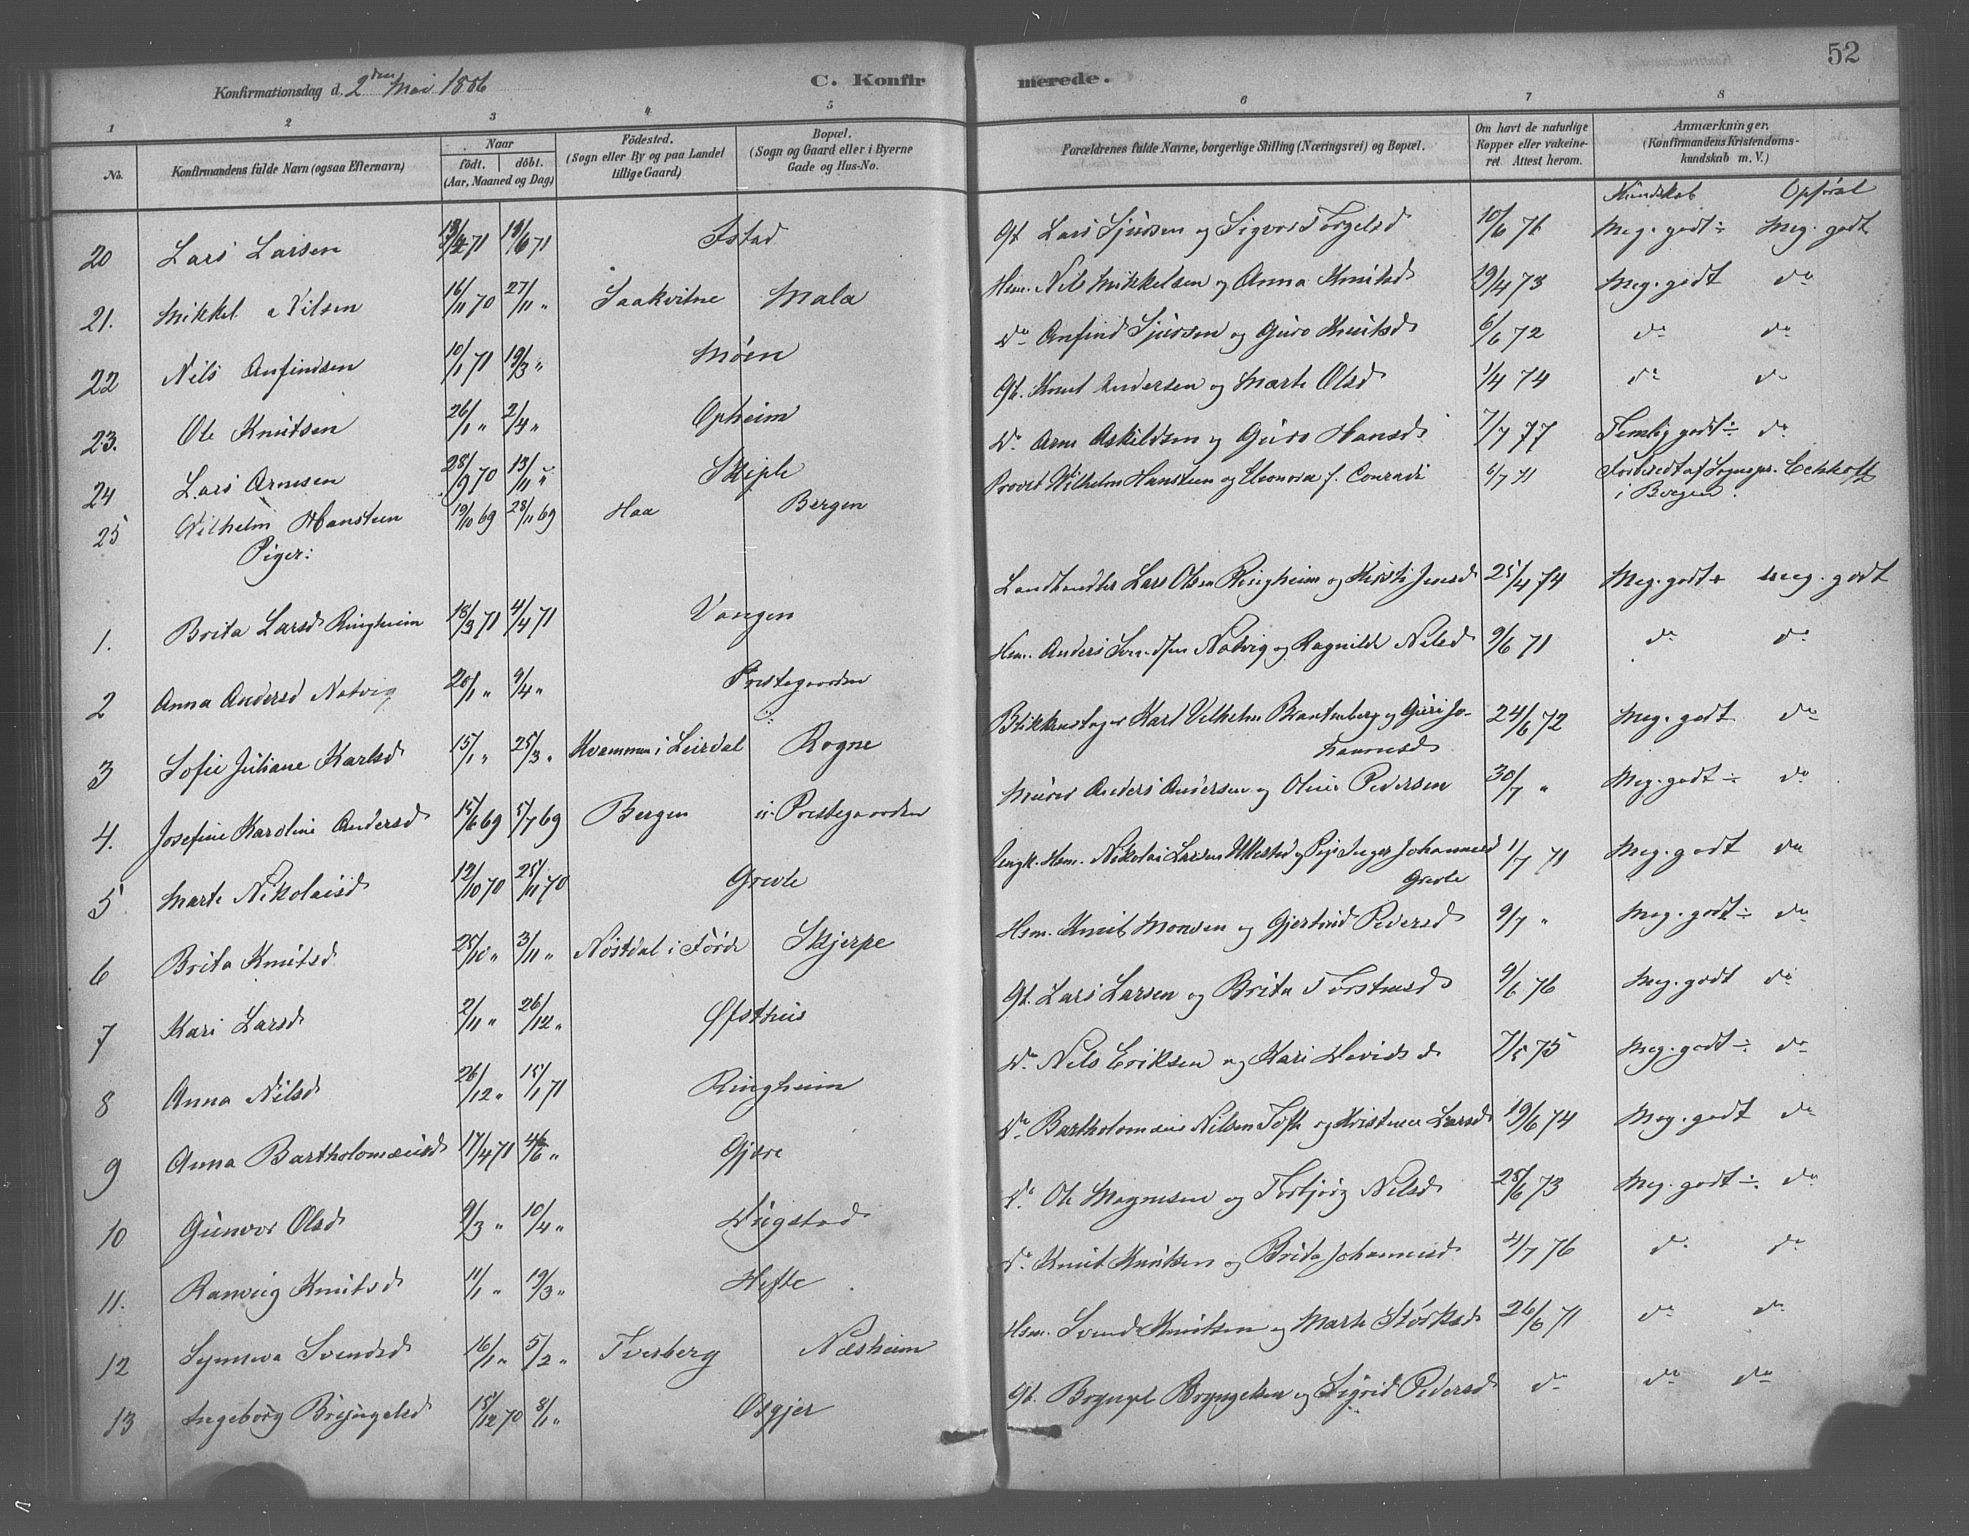 52
Konfirmationsdag d. 2den Mai 1886
C. Konfirmerede.
1 2 3 4 5 6 7 8
No. Konfirmandens fulde Navn (ogsaa Efternavn) Naar födt. döbt. (Aar, Maaned og Dag) Födested. (Sogn eller By og paa Landet tillige Gaard) Bopæl. (Sogn og Gaard eller i Byerne Gade og Hus-No. Forældrenes fulde Navne, borgerlige Stilling (Næringsvei) og Bopæl. Om havt de naturlige Kopper eller vakcineret Attest herom. Anmærkninger. (Konfirmandens Kristendomskundskab m. V.)
Kundskab Opførsel
20 Lars Larsen 71 18/6 71 Istad Gb. Lars Sjursen og Sigvor Torgelsd 10/6 76 Meg. godt ÷ Meg. godt
21. Mikkel Nilsen 16/11 70 27/11 " Saakvitne Mala Hsm. Nils Mikkelsen og Anna Knutsd 19/4 73 Meg. godt do
22 Nils Anfindsen 10/1 71 19/3 " Möen do Anfind Sjursen og Guro Knutsd 6/6 72 do do
23. Ole Knutsen 26/1 " 2/4 " Opheim Gb. Knut Andersen og Marte Olsd 1/4 74 do do
24 Lars Arnesen 28/9 70 13/11 " Skiple do Arne Askildsen og Guro Hansd 7/7 77 Temlig godt ÷ do
25 Wilhelm Hansteen 19/10 69 28/11 69 Haa Bergen Provst Wilhelm Hansteen og Eleonora f. Conradi 6/7 71 Forberedt af Sognepr. i Bergen.
Piger:
1. Brita Larsd Ringheim 18/3 71 4/4 71 Vangen Landhandler Lars Olsen Ringheim og Kirsti Jensd 25/4 74 Meg. godt + Meg. godt
2 Anna Andersd Natvig 20/1 " 9/4 " Prestegaarden Hsm. Anders Svendsen Natvig og Ragnilde Nilsd 9/6 71 do do
3 Sofie Juliane Karlsd 15/1 " 25/3 " Kvammen i Leirdal Rogne Blikkenslager Karl Vilhelm Brantenberg og Guri Johannesd 24/6 72 Meg. godt do
4. Josefine Karoline Andersd 15/6 69 5/7 69 Bergen Prestegaarden Murer Anders Andersen og Oline Pedersen 30/7 " Meg. godt ÷ do
5 Marte Nikolaisd 12/10 70 25/11 70 Grevle Ungk. Hsm. Nikolai Larsen Ullestad og Pige Inger Johannesd Grevle 1/7 71 Meg. godt do
6 Brita Knutsd 25/10 " 3/11 " Nöstdal i Förde Skjerpe Hsm. Knut Monsen og Gjertrud Pedersd 9/7 " Meg. godt ÷ do
7 Kari Larsd 2/11 " 26/12 " Øfsthus Gb. Lars Larsen og Brita Torstensd 9/6 76 Meg. godt do
8 Anna Nilsd 26/12 " 15/1 71 Ringheim do Nils Eriksen og Kari Davidsd 7/5 75 Meg. godt ÷ do
9 Anna Bartholomæusd 17/4 71 " Gjære do Bartholomæus Nilsen Töfte og Kristense Larsd 19/6 74 Meg. godt do
10 Gunvor Olsd 9/3 " 10/4 " Dugstad do Ole Magnesen og Torbjörg Nilsd 25/6 73 Meg. godt ÷ do
11. Ranveig Knutsd 11/1 " 19/3 " Hefte do Knut Knutsen og Brita Johannesd 4/7 76 do do
12 Synneva Svendsd 16/1 " 5/2 " Tverberg Næsheim Hsm. Svend Knutsen og Marte Störksd 26/6 71 do do
13 Ingeborg Bryngelsd 18/12 70 8/1 " Osgjer Gb. Bryngel Bryngelsen og Sigrid Pedersd do do do